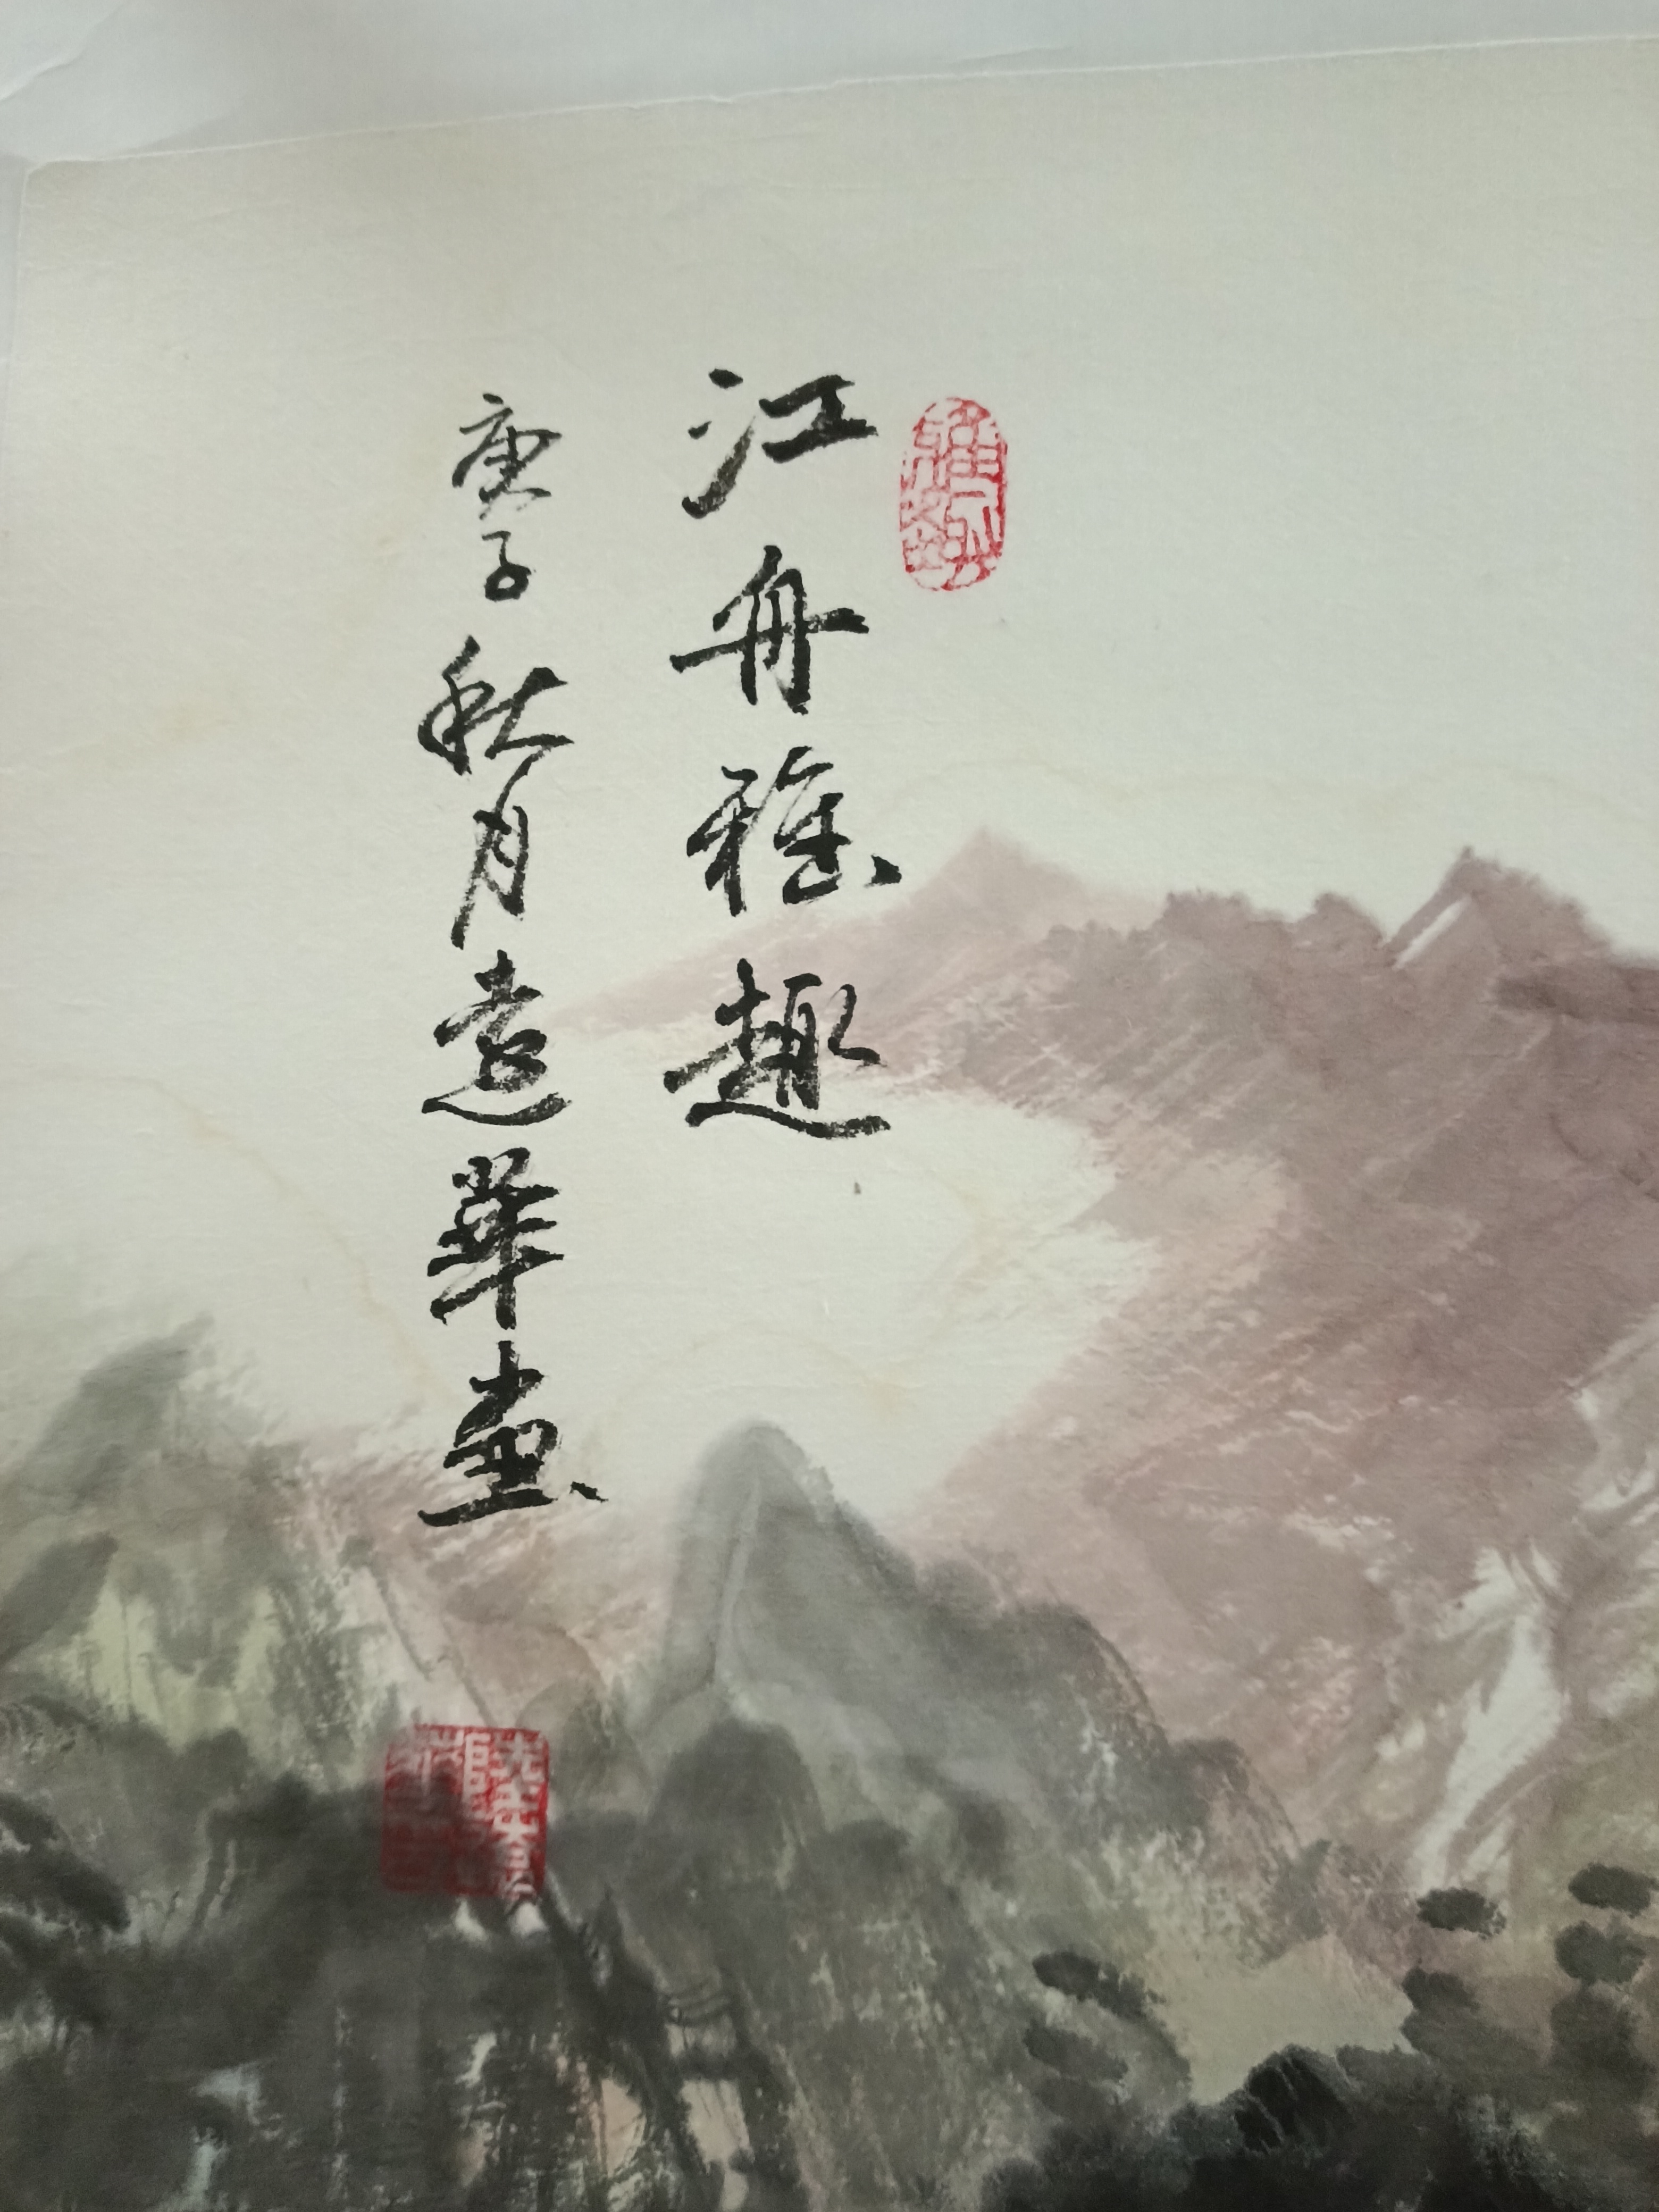 江舟雅趣
庚子秋月遠華畫